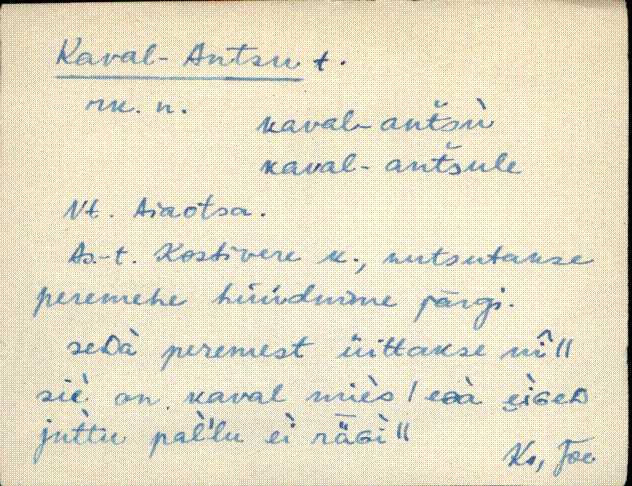 Kaval-Antsu t.
rk. n.
kaval-antšù
kaval-antšule
Vt. Aiaotsa.
As.-t. Kostivere k., kutsutakse
peremehe hüüdnime järgi.
seᴅà peremest üittakse nî॥
siè on kaval miès / eɢà èiɢeᴅ
juttu pal'lu eì räɢì॥
Ko, Joe